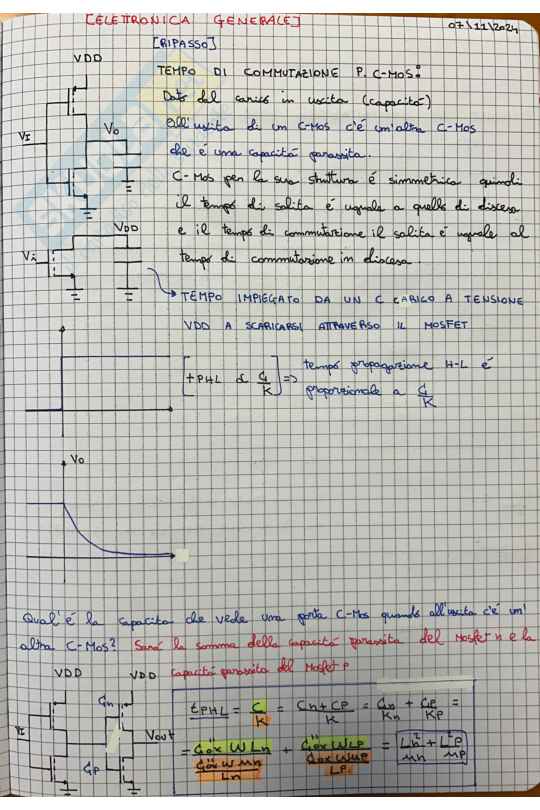 [ELETTRONICA GENERALE]
07\11\2024
[RIPASSO]
VDD
TEMPO DI COMMUTAZIONE P. C-MOS:
Dato dal carico in uscita (capacità)
VI
Vo
All'uscita di un C-MOS c'é un'altra C-MOS
che é una capacità parassita.
C-Mos per la sua struttura é simmetrica quindi
il tempo di salita é uguale a quello di discesa
VDD
e il tempo di commutazione il salita é uguale al
Vi
tempo di commutazione in discesa.
TEMPO IMPIEGATO DA UN C CARICO A TENSIONE
VDD A SCARICARSI ATTRAVERSO IL MOSFET
[tPHL α C/K] => tempo propagazione H-L é
proporzionale a C/K
Vo
Qual'é la capacità che vede una porta C-Mos quando all'uscita c'é un'
altra C-Mos? Sará la somma della capacità parassita del Mosfet n e la
capacità parassita del Mosfet P
VDD
VDD
Cn
tPHL = C/K = Cn+CP/K = Cn/Kn + CP/KP =
VI
Vout
= C"ox W Ln / C"ox W μn/Ln + C"ox W LP / C"ox W μP/LP = Ln²/μn + LP²/μP
CP